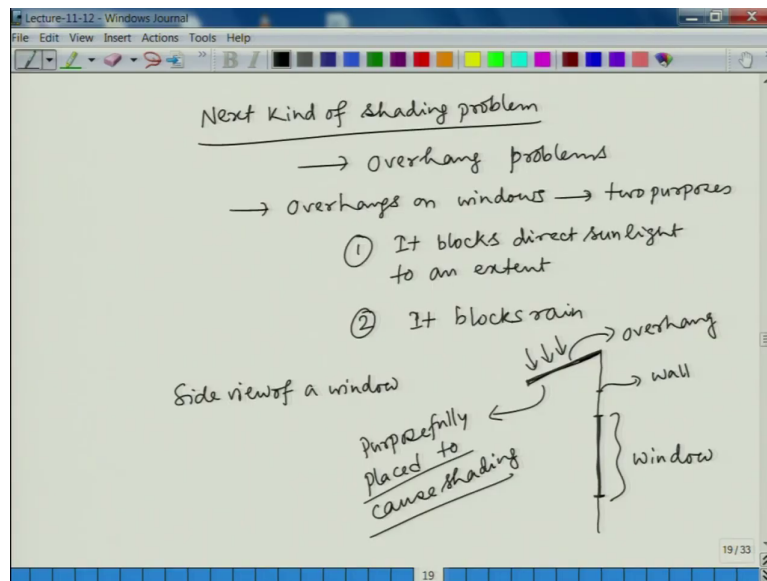 Lecture-11-12 - Windows Journal
File Edit View Insert Actions Tools Help
B I
Next kind of shading problem
→ overhang problems
→ overhangs on windows → two purposes
① It blocks direct sunlight
to an extent
② It blocks rain
overhang
wall
Side view of a window
Purposefully
placed to
cause shading
window
19/33
19